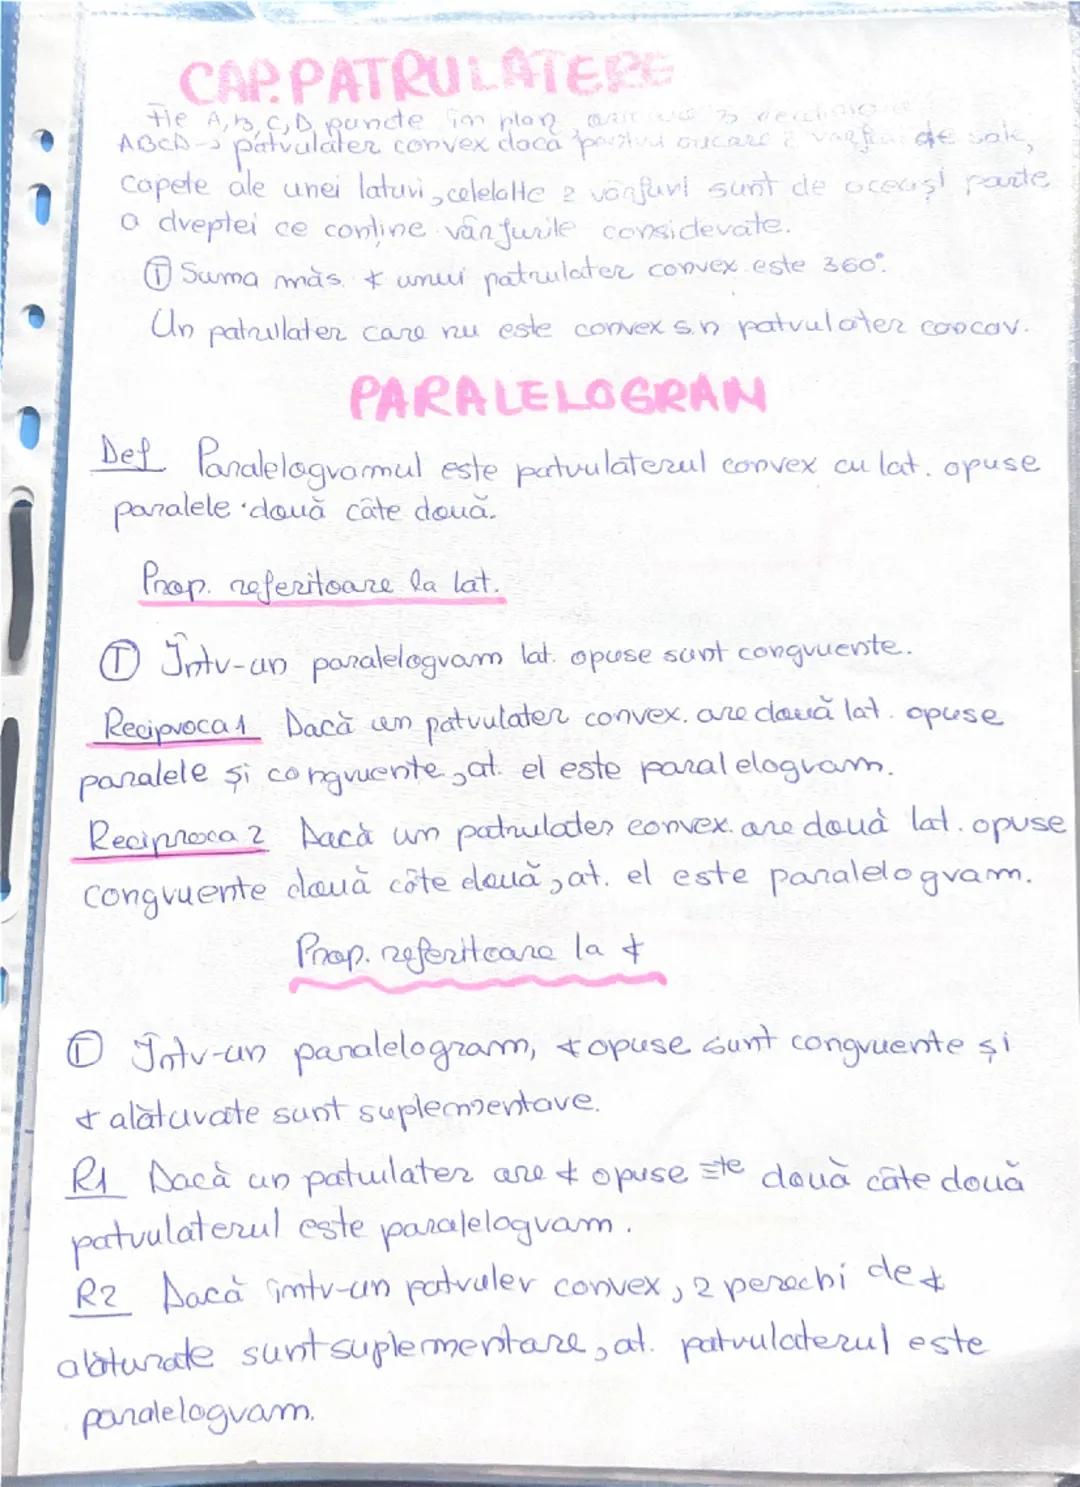 CAP. PATRULATERE
Fie A, B, C, D puncte în plan
ABCD → patrulater convex dacă oricare 2 vârfuri de sale,
capete ale unei laturi, celelalte 2 vârfuri sunt de aceași parte
a dreptei ce conține vârfurile considerate.
Ⓣ Suma măs. ∢ unui patrulater convex este 360°.
Un patrulater care nu este convex s.n patrulater concav.
PARALELOGRAM
Def Paralelogramul este patrulaterul convex cu lat. opuse
paralele două câte două.
Prop. referitoare la lat.
Ⓣ Într-un paralelogram lat. opuse sunt congruente.
Reciproca 1 Dacă un patrulater convex. are două lat. opuse
paralele și congruente, at. el este paralelogram.
Reciproca 2 Dacă un patrulater convex. are două lat. opuse
congruente două câte două, at. el este paralelogram.
Prop. referitoare la ∢
Ⓣ Într-un paralelogram, ∢ opuse sunt congruente și
∢ alăturate sunt suplementare.
R1 Dacă un patrulater are ∢ opuse ≡te două câte două
patrulaterul este paralelogram.
R2 Dacă într-un patruler convex, 2 perechi de ∢
alăturate sunt suplementare, at. patrulaterul este
paralelogram.